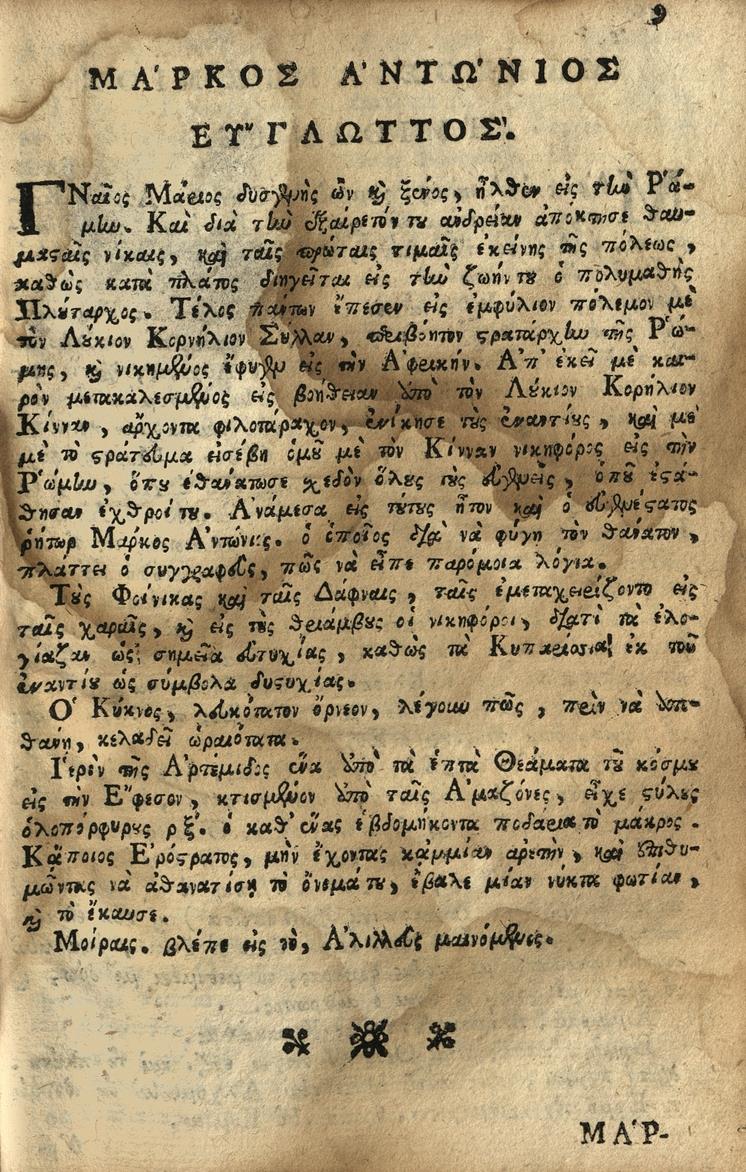 9
ΜΑ'ΡΚΟΣ Α'ΝΤΩ'ΝΙΟΣ
ΕΥ"ΓΛΩΤΤΟΣ.
ΓΝαῖος Μάριος δυσγενὴς ὢν καὶ ξένος, ἦλθεν εἰς τὴν Ῥώ-
μην. Καὶ διὰ τὴν ἐξαίρετόν του ἀνδρείαν ἀπόκτησε θαυ-
μασταῖς νίκαις, καὶ ταῖς πρώταις τιμαῖς ἐκείνης τῆς πόλεως,
καθὼς κατὰ πλάτος διηγεῖται εἰς τὴν ζωήν του ὁ πολυμαθὴς
Πλούταρχος. Τέλος πάντων ἔπεσεν εἰς ἐμφύλιον πόλεμον μὲ
τὸν Λούκιον Κορνήλιον Σύλλαν, περιβόητον στρατάρχην τῆς Ῥώ-
μης, καὶ νικημένος ἔφυγεν εἰς τὴν Ἀφρικήν. Ἀπ' ἐκεῖ μὲ και-
ρὸν μετακαλεσμένος εἰς βοήθειαν ὑπὸ τὸν Λούκιον Κορήλιον
Κίνναν, ἄρχοντα φιλοτάραχον, ἐνίκησε τοὺς ἐναντίους, καὶ μὲ
μὲ τὸ στράτευμα εἰσέβη ὁμοῦ μὲ τὸν Κίνναν νικηφόρος εἰς τὴν
Ῥώμην, ὅπου ἐθανάτωσε σχεδὸν ὅλους τοὺς εὐγενεῖς, ὁποῦ ἐστά-
θησαν ἐχθροί του. Ἀνάμεσα εἰς τούτους ἦτον καὶ ὁ εὐγενέστατος
ῥήτωρ Μάρκος Ἀντώνιος. ὁ ὁποῖος διὰ νὰ φύγῃ τὸν θάνατον,
πλάττει ὁ συγγραφεὺς, πῶς νὰ εἶπε παρόμοια λόγια.
Τοὺς Φοίνικας καὶ ταῖς Δάφναις, ταῖς ἐμεταχειρίζοντο εἰς
ταῖς χαραῖς, καὶ εἰς τοὺς θριάμβους οἱ νικηφόροι, διατὶ τὰ ἐλο-
γίαζαν ὡς σημεῖα εὐτυχίας, καθὼς τὰ Κυπαρίσσια ἐκ τοῦ
ἐναντίου ὡς σύμβολα δυστυχίας.
Ὁ Κύκνος, λευκότατον ὄρνεον, λέγουν πῶς, πρὶν νὰ ἀπε-
θάνῃ, κελαδεῖ ὡραιότατα.
Ἱερὸν τῆς Ἀρτέμιδος ἕνα ἀπὸ τὰ ἑπτὰ Θεάματα τοῦ κόσμου
εἰς τὴν Ἔφεσον, κτισμένον ἀπὸ ταῖς Ἀμαζόνες, εἶχε στύλους
ὁλοπόρφυρους ρξ. ὁ καθ' ἕνας ἑβδομήκοντα ποδάρια τὸ μάκρος.
Κᾄποιος Ἐρόστρατος, μὴν ἔχοντας καμμίαν ἀρετὴν, καὶ ἐπιθυ-
μῶντας νὰ ἀθανατίσῃ τὸ ὄνομά του, ἔβαλε μίαν νύκτα φωτίαν,
καὶ τὸ ἔκαυσε.
Μοίραις. βλέπε εἰς τὸ, Ἀχιλλεὺς μαινόμενος.
ΜΑ'Ρ-